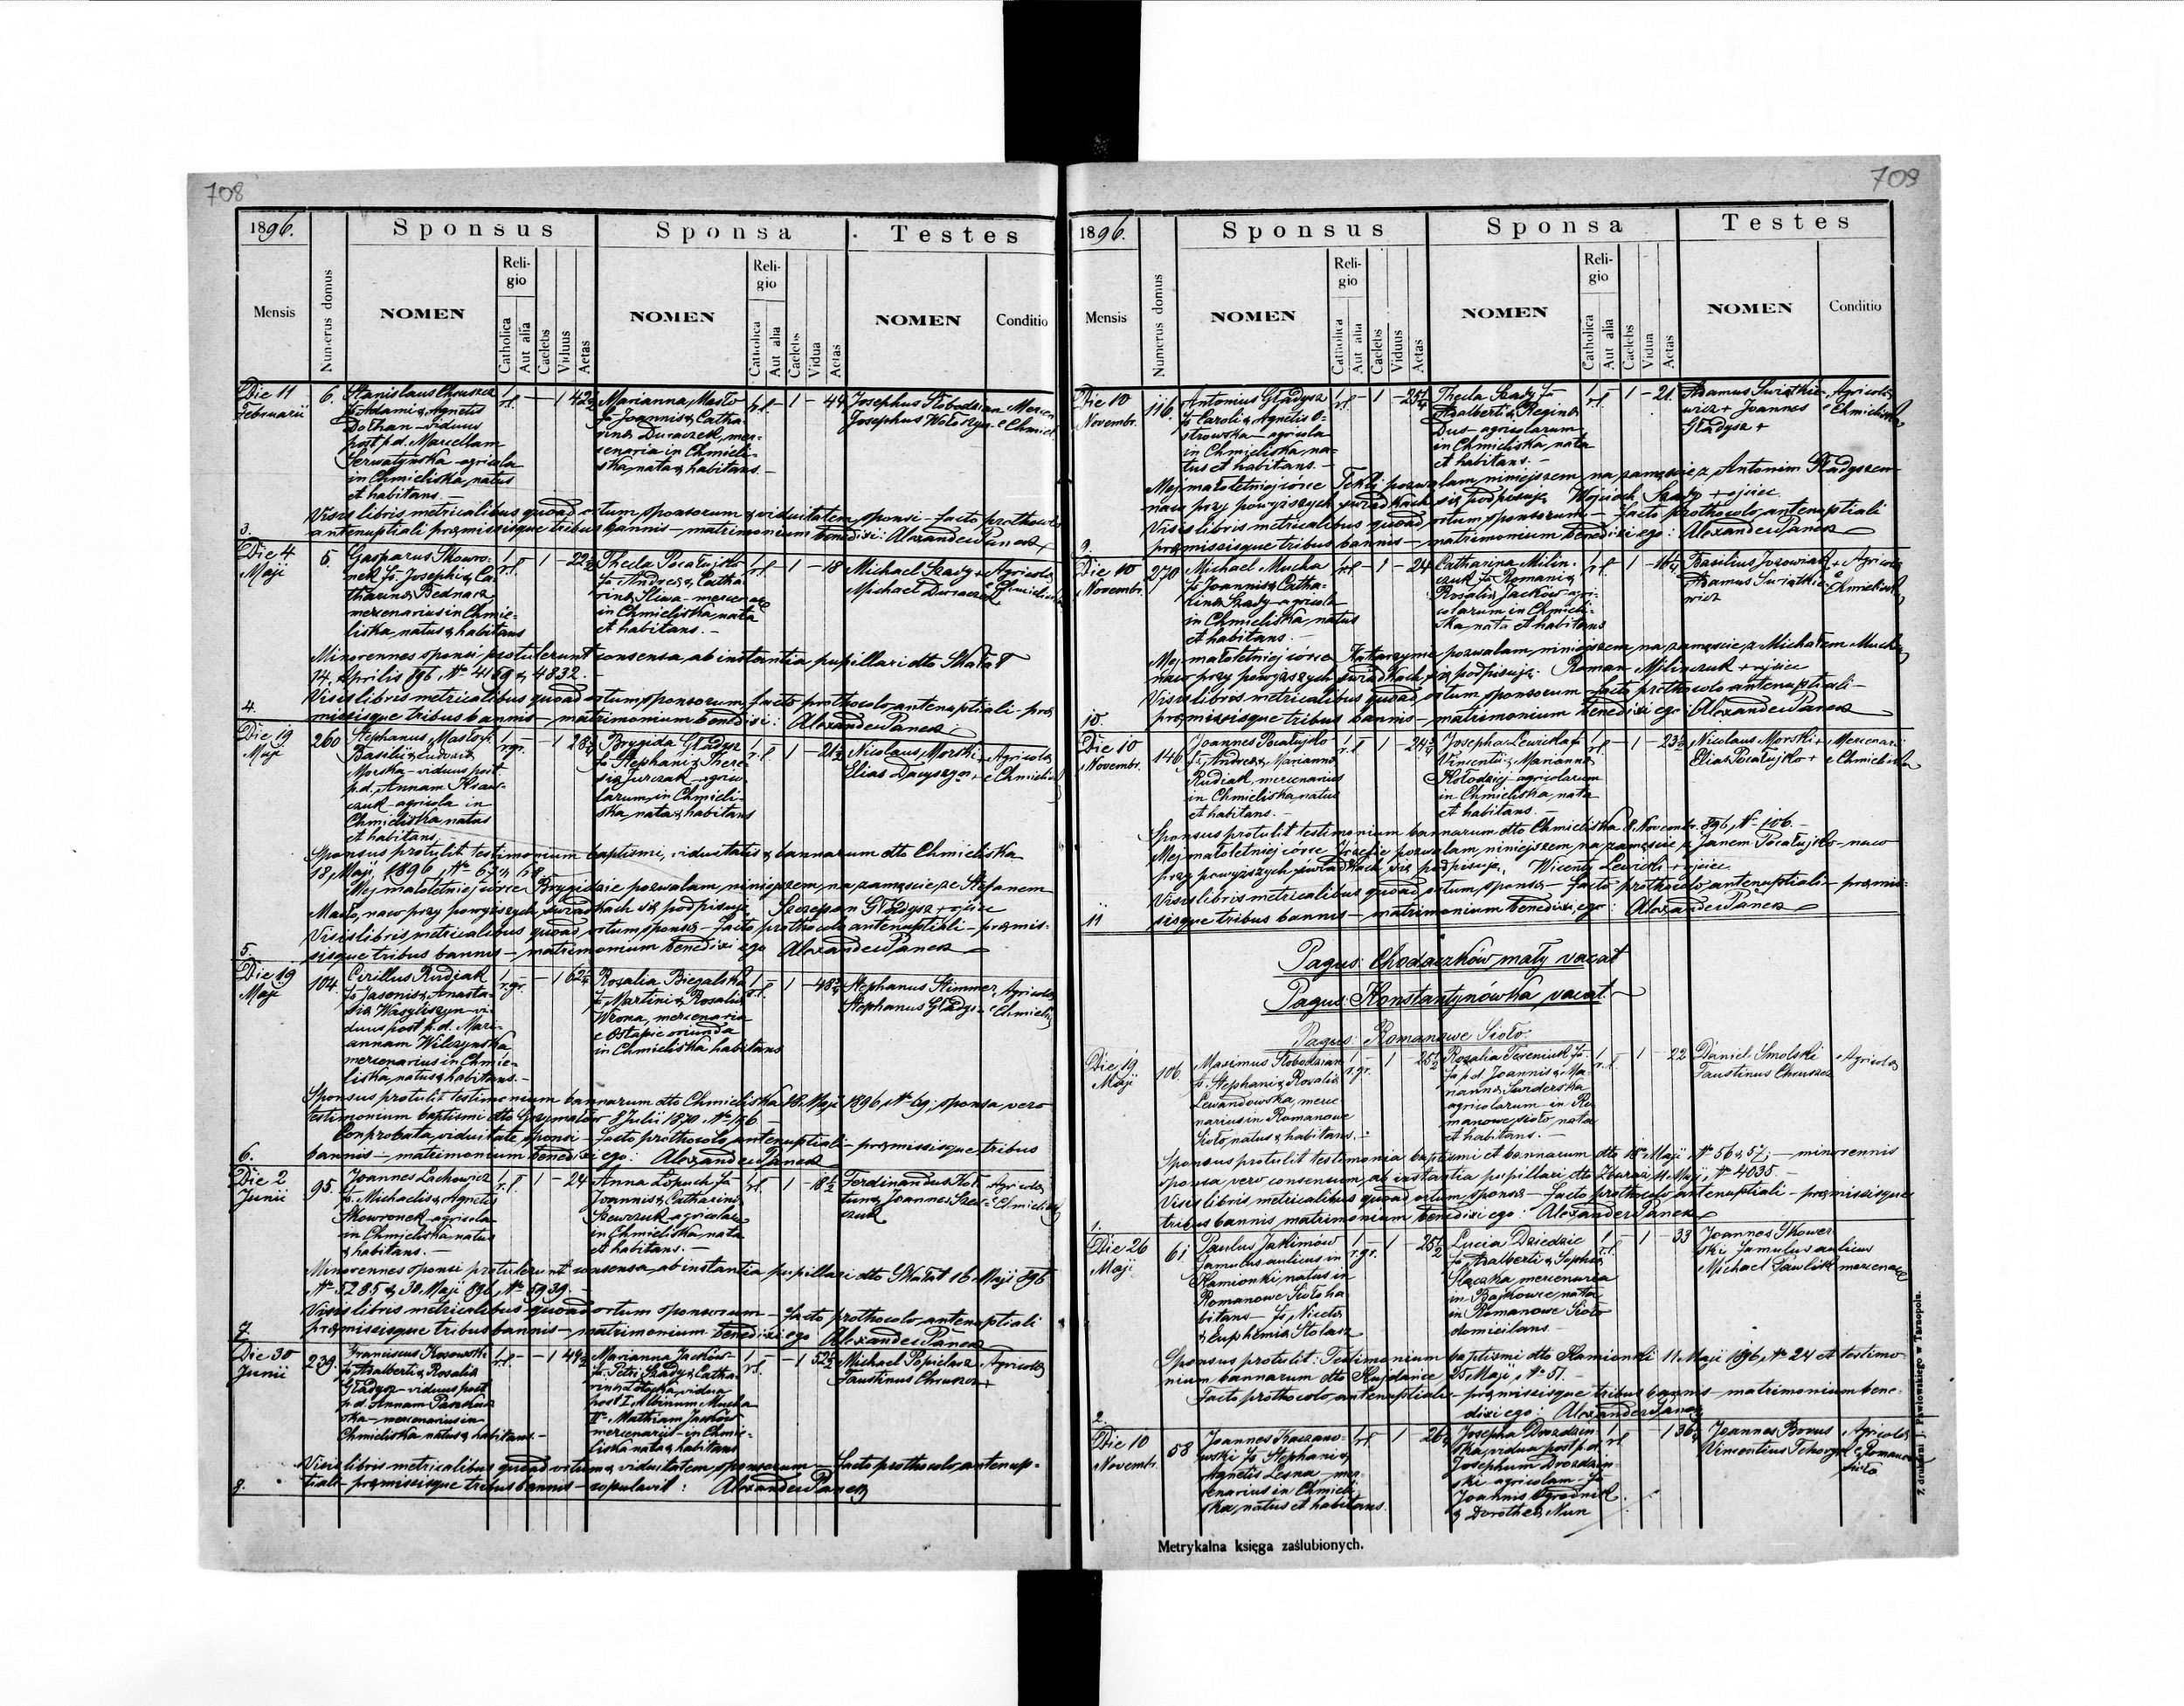 708
1896.
Sponsus
Sponsa
Testes
Mensis
Numerus domus
NOMEN
Religio
Catholica
Aut alia
Caelebs
Viduus
Aetas
NOMEN
Religio
Catholica
Aut alia
Caelebs
Vidua
Aetas
NOMEN
Conditio
Die 11 Februarii
3.
6.
Stanislaus Chruszcz
fs Adami & Agnetis
Dołhan - viduus
post p.d. Marcellam
agricola
in Chmieliska, natus
et habitans. -
r.l. - 1
Marianna Masło
fa Joannis & Catha-
rina Duraczek, mer-
cenaria in Chmieli-
ska, nata & habitans. -
r.l. 1 - 44
Josephus Słobodzian
Josephus Wołoszyn
Visis libris metricalibus quoad ortum sponsorum & viduitatem sponsi - facto prothocolo
antenuptiali præmissisque tribus bannis - matrimonium benedixi: Alexander Panek
Die 4 Maji
4.
6.
Gasparus Skowro-
nek fs. Josephi & Ca-
tharina Bednarz
mercenarius in Chmie-
liska, natus & habitans
r.l. 1 - 22
Thecla Pocałujko
fa Andreæ & Catha-
rina Śliwa - mercenaria
in Chmieliska, nata
et habitans. -
r.l. 1 - 18
Michael Szady + Agricolæ
Michael Duraczek e Chmieliska
Minorennes sponsi protulerunt consensa, ab instantia pupillari dto Skałat
14. Aprilis 896 № 4189 & 4832. -
Visis libris metricalibus quoad ortum sponsorum facto prothocolo antenuptiali - præ-
missisque tribus bannis - matrimonium benedixi: Alexander Panek
Die 19 Maji
5.
260
Stephanus Masło fs.
Basilii & Eudoxia
Morska - viduus post
p.d. Annam Kraw-
czuk - agricola in
Chmieliska natus
et habitans. -
r.gr. - 1 28
Brygida Gładysz
fa Stephani & There-
sia Jurczak - agrico-
larum, in Chmieli-
ska, nata & habitans
r.l. 1 - 21½
Nicolaus Morski + Agricolæ
Elias Dacyszyn + e Chmieliska
Sponsus protulit testimonium baptismi, viduitatis & bannorum dto Chmieliska
18 Maji, 1896, № 67 & 68. -
Mej małoletniej córce Brygidzie pozwalam niniejszem, na zamęście ze Stefanem
Masło, naco przy powyższych świadkach się podpisuję Szczepan Gładysz + ojciec
Visis libris metricalibus quoad ortum sponsæ - facto prothocolo antenuptiali - præmis-
sisque tribus bannis - matrimonium benedixi ego Alexander Panek
Die 19 Maji
6.
104.
Cirillus Rudiak
fs Jasonis & Anasta-
sia Wasyliszyn - vi-
duus post p.d. Mari-
annam Wilczyńska
mercenarius in Chmie-
liska, natus & habitans. -
r.gr. - 1 62
Rosalia Biegalska
fa Martini & Rosalia
Wrona, mercenaria
e Ostapie oriunda
in Chmieliska habitans
r.l. 1 - 48
Stephanus Stimmer Agricolæ
Stephanus Gładysz e Chmieliska
Sponsus protulit testimonium bannorum dto Chmieliska 18. Maji 1896, № 69; sponsa vero
testimonium baptismi dto Grzymałów 8 Julii 1870 № 196
Comprobata viduitate sponsi - facto prothocolo antenuptiali - præmissisque tribus
bannis - matrimonium benedixi ego: Alexander Panek
Die 2 Junii
7.
95.
Joannes Lachowicz
fs. Michaelis & Agnetis
Skowronek - agricola
in Chmieliska, natus
& habitans. -
r.l. 1 - 24
Anna Łopuch fa
Joannis & Catharina
Szewczuk - agricolarum
in Chmieliska nata
et habitans. -
r.l. 1 - 18½
Ferdinandus Kot- Agricolæ
tun & Joannes Szew- e Chmieliska
czuk
Minorennes sponsi protulerunt consensa ab instantia pupillari dto Skałat 16 Maji 896
№ 5285 & 30. Maji 896, № 5939. -
Visis libris metricalibus quoad ortum sponsorum - facto prothocolo antenuptiali
præmissisque tribus bannis - matrimonium benedixi ego Alexander Panek
Die 30 Junii
8.
239.
Franciscus Kosowski
fs Adalberti & Rosalia
Gładysz - viduus post
p.d. Annam
mercenarius in
Chmieliska, natus & habitans. -
r.l. - 1
Marianna Jacków
fa. Petri Szady & Catha-
rina vidua
post I Albinum Mucha
IIº Mathiam Jacków
mercenarii - in Chmie-
liska nata & habitans
r.l. - 1
Michael Popielarz Agricolæ
Faustinus Chruszcz +
Visis libris metricalibus quoad ortum & viduitatem sponsorum - facto prothocolo antenup-
tiali - præmissisque tribus bannis - copulavit: Alexander Panek
709
1896.
Sponsus
Sponsa
Testes
Mensis
Numerus domus
NOMEN
Religio
Catholica
Aut alia
Caelebs
Viduus
Aetas
NOMEN
Religio
Catholica
Aut alia
Caelebs
Vidua
Aetas
NOMEN
Conditio
Die 10 Novembr.
9.
116.
Antonius Gładysz
fs Caroli & Agnetis O-
strowska - agricola
in Chmieliska, na-
tus et habitans. -
r.l. 1 -
Thecla Szady fa
Adalberti & Regina
Dus - agricolarum
in Chmieliska, nata
et habitans. -
r.l. 1 - 21.
Adamus Świątkie- Agricolæ
wicz + Joannes e Chmieliska
Gładysz +
Mej małoletniej córce Tekli pozwalam niniejszem na zamęście z Antonim Gładyszem
naco przy powyższych świadkach się podpisuję Wojciech Szady + ojciec
Visis libris metricalibus quoad ortum sponsorum - facto prothocolo antenuptiali
præmissisque tribus bannis - matrimonium benedixi ego: Alexander Panek
Die 10 Novembr.
10.
270
Michael Mucha
fs Joannis & Catha-
rina Szady - agricola
in Chmieliska, natus
et habitans. -
r.l. - 1 - 24
Catharina Milin-
czuk fa Romani &
Rosalia Jacków agri-
colarum in Chmieli-
ska, nata et habitans
r.l. 1 -
Basilius Juzowiak + Agricolæ
Adamus Świątkie- e Chmieliska
wicz
Mej małoletniej córce Katarzynie pozwalam niniejszem na zamęście z Michałem Muchą
naco przy powyższych świadkach się podpisuję: Roman Milinczuk + ojciec
Visis libris metricalibus quoad ortum sponsorum - facto prothocolo antenuptiali -
præmissisque tribus bannis - matrimonium benedixi ego: Alexander Panek
Die 10 Novembr.
11
146
Joannes Pocałujko
fs. Andreæ & Marianna
Rudiak, mercenarius
in Chmieliska, natus
et habitans. -
r.l. 1 - 24
Josepha Lewicka fa
Vincentii & Marianna
Kołodziej - agricolarum
in Chmieliska, nata
et habitans.
r.l. 1 - 23
Nicolaus Morski + Mercenarii
Elias Pocałujko + e Chmieliska
Sponsus protulit testimonium bannorum dto Chmieliska 8. Novembr. 896, № 106. -
Mej małoletniej córce Józefie pozwalam niniejszem na zamęście z Janem Pocałujko - naco
przy powyższych świadkach się podpisuję. Wicenty Lewicki + ojciec
Visis libris metricalibus quoad ortum sponsæ - facto prothocolo antenuptiali - præmis-
sisque tribus bannis - matrimonium benedixi ego: Alexander Panek
Pagus: Chodaczków mały vacat
Pagus: Konstantynówka vacat. -
Pagus: Romanowe Sioło
Die 19 Maji
1.
106.
Maximus Słobodzian
fs Stephani & Rosalia
Lewandowska, merce-
narius in Romanowe
Sioło, natus & habitans. -
r.gr. - 1 25½
Rosalia Tereniuk fa
fa p.d. Joannis & Ma-
rianna Świderska
agricolarum - in Ro-
manowe Sioło, nata
et habitans. -
r.l. 1 - 22
Daniel Smolski Agricolæ
Faustinus Chruszcz
Sponsus protulit testimonia baptismi et bannorum dto 18 Maji № 56 & 57; - minorennis
sponsa vero consensum, ab instantia pupillari dto Zbaraż 11. Maji, № 4035. -
Visis libris metricalibus quoad ortum sponsæ - facto prothocolo antenuptiali - præmissisque
tribus bannis, matrimonium benedixi ego: Alexander Panek
Die 26 Maji
2.
61
Paulus Jakimów
famulus aulicus in
Kamionki, natus in
Romanowe Sioło ha-
bitans - fs. Niceta
& Euphemia Stolarz
r.gr. - 1 25½
Lucia Dziedzic
fa Adalberti & Sophia
Ślączka, mercenaria
in nata
in Romanowe Sioło
domicilans
r.l. - 1 - 33
Joannes Skower-
ski, famulus aulicus
Michael Pawlik mercenarius
Sponsus protulit: Testimonium baptismi dto Kamionki 11 Maji 1896, № 24 et testimo-
nium bannorum dto Kujdańce 25 Maji, № 51. -
Facto prothocolo antenuptiali - præmissisque tribus bannis - matrimonium bene-
dixi ego: Alexander Panek
Die 10 Novembr.
58
Joannes Kaczano-
wski fs Stephani &
Agnetis Leśna - mer-
cenarius in Chmieli-
ska, natus et habitans.
r.l. 1 - 26
Josepha Drozdzin-
ska, vidua post p.d.
Josephum Drozdzin-
ski - agricolam - fa
Joannis Ogrodnik
& Dorothea Nun
r.l. - 1 36
Joannes Bonus Agricolæ
Vincentius e Romanowe
Sioło
Metrykalna księga zaślubionych.
Z drukarni J. Pawłowskiego w Tarnopolu.